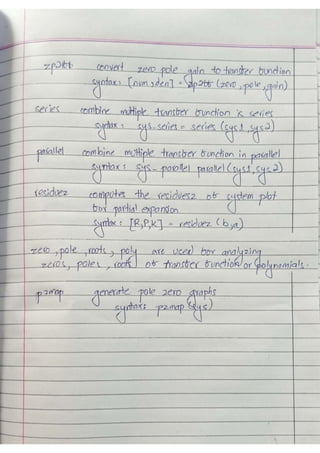 zp2tt convert zero pole gain to transfer function
syntax: [num,den] = zp2tt (zero, pole, gain)
series combine multiple transfer function is series
syntax: sys-series = series (sys1, sys2)
parallel combine multiple transfer function in parallel
syntax: sys- parallel parallel (sys1, sys2)
residuez computes the residuesz of system plot
for partial expansion
syntax: [R,P,K] = residuez (b,a)
zero, pole, roots, poly are used for analyzing
zeros, poles, roots of transfer function or polynomials.
pzmap generate pole zero graphs
syntax: pzmap (sys)